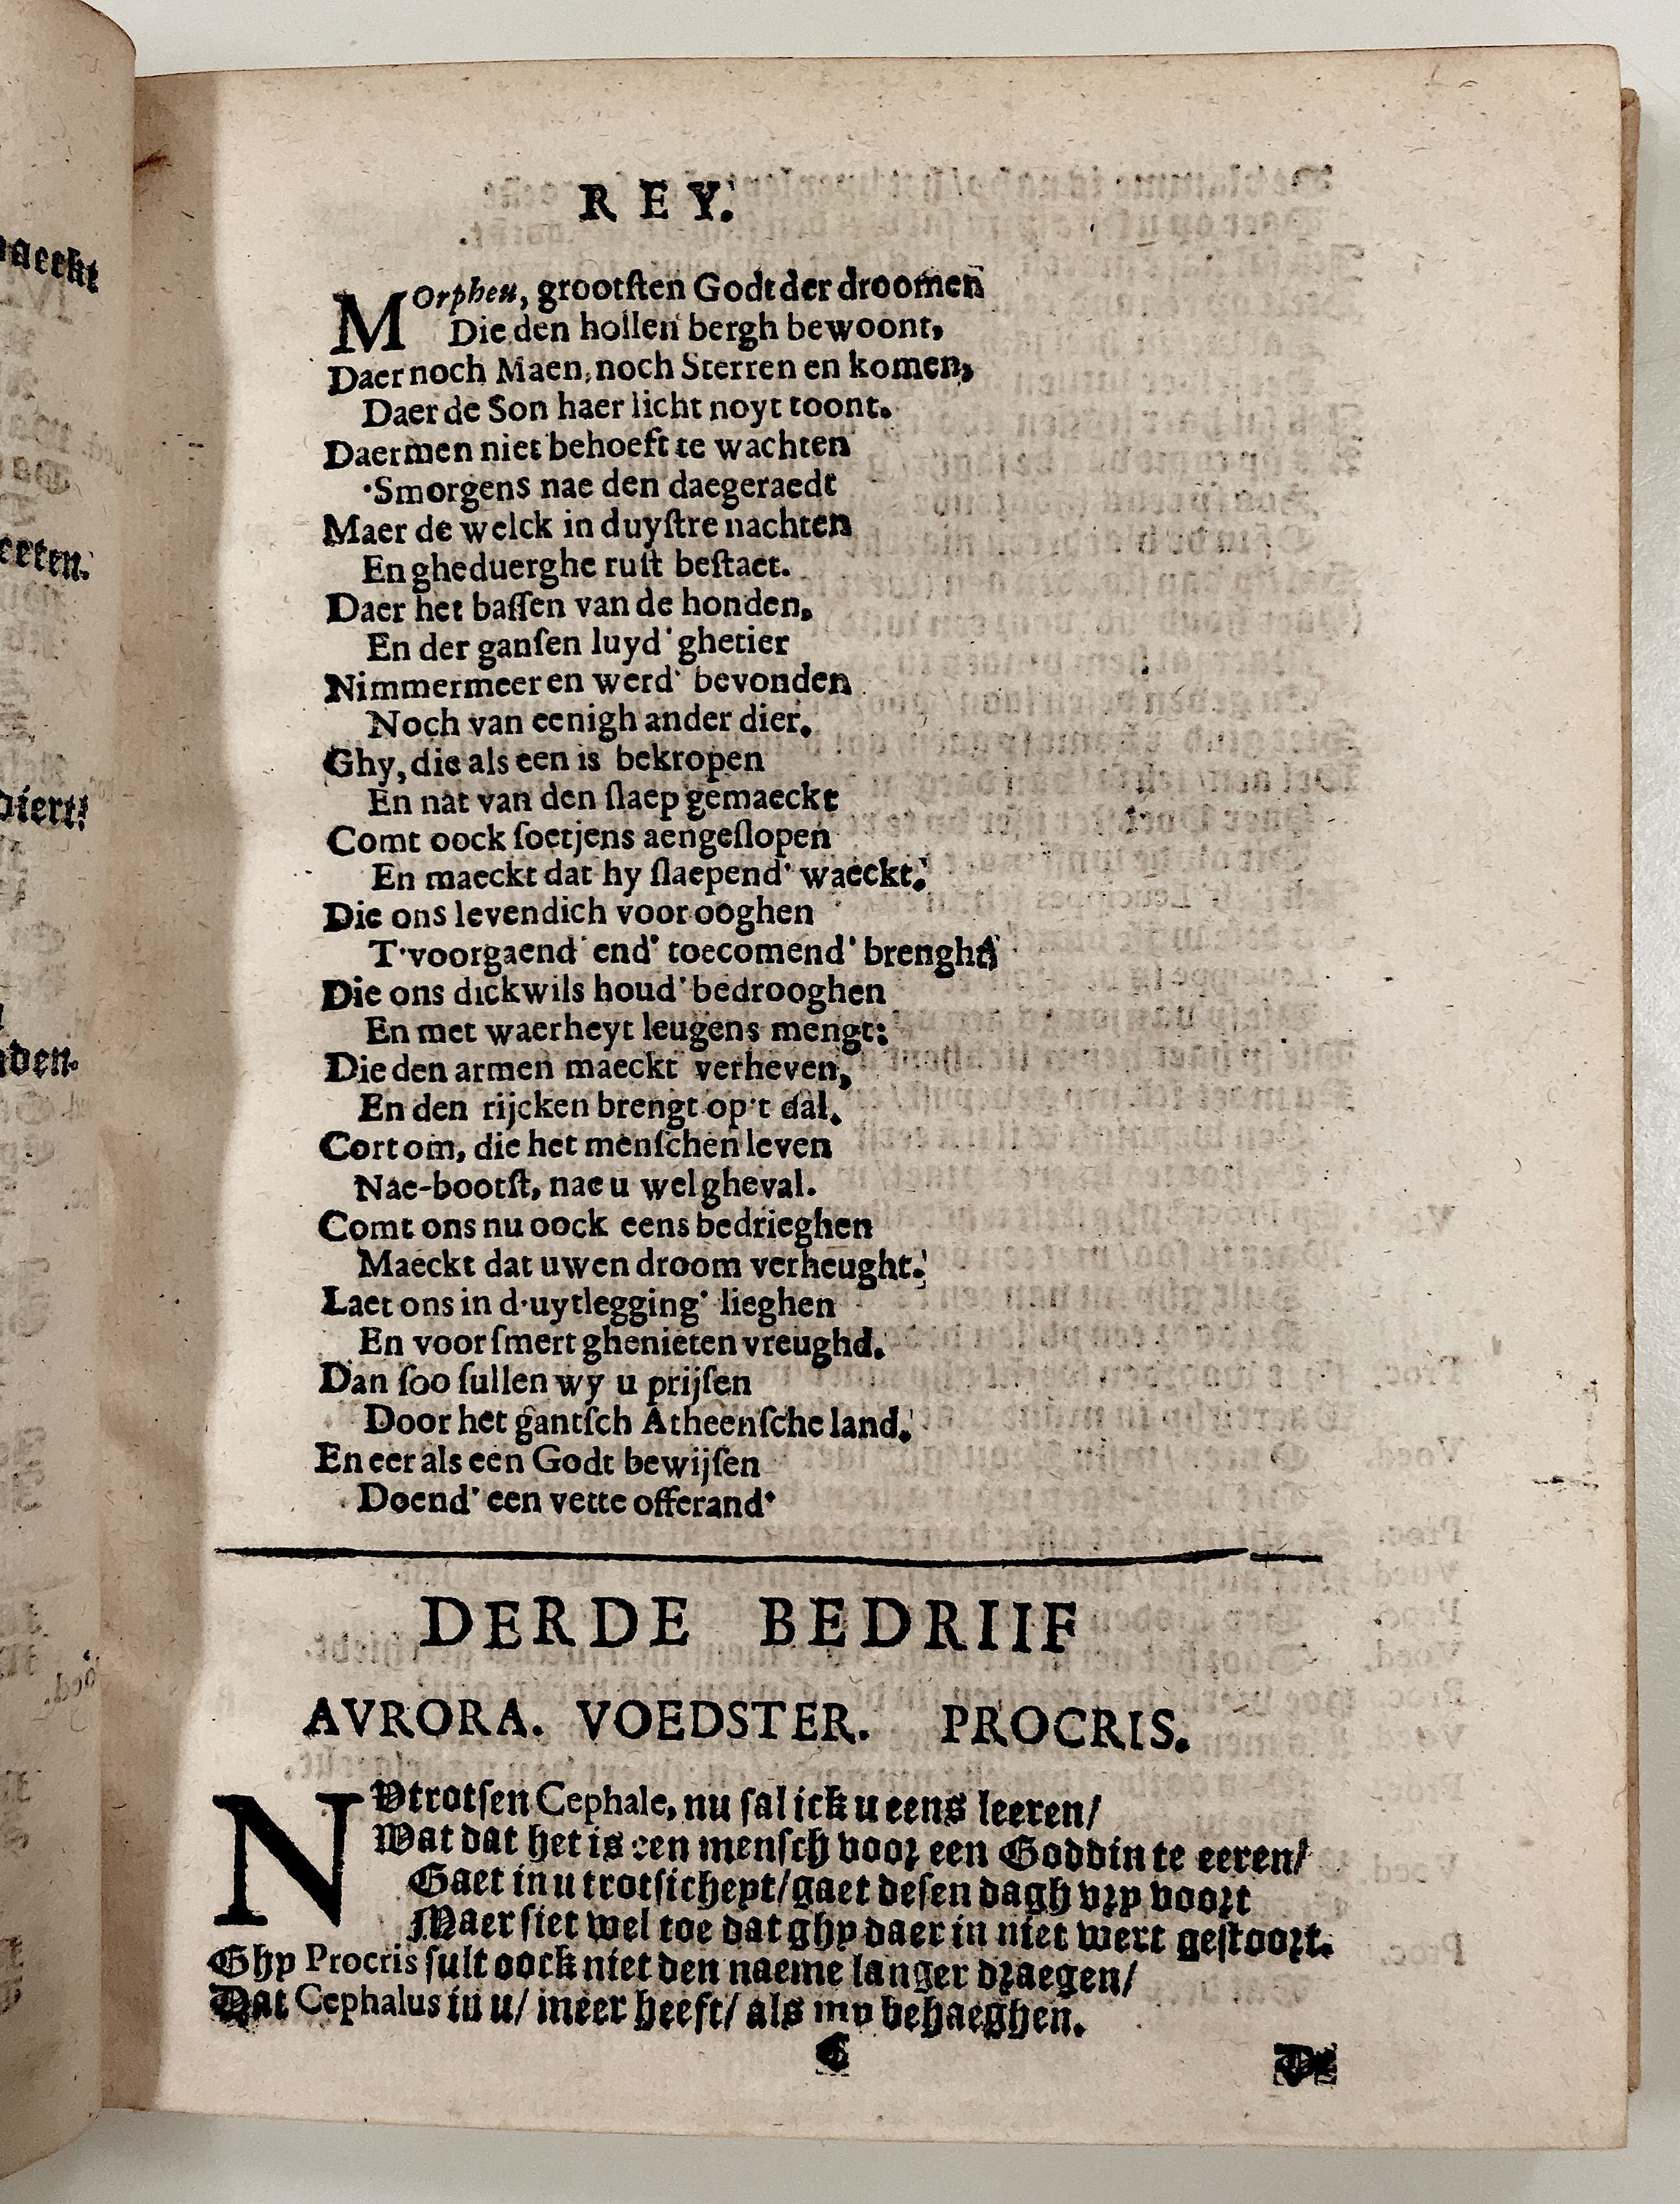 REY.
MOrpheu, grootſten Godt der droomen
Die den hollen bergh bewoont,
Daer noch Maen, noch Sterren en komen,
Daer de Son haer licht noyt toont.
Daermen niet behoeft te wachten
'Smorgens nae den daegeraedt
Maer de welck in duyſtre nachten
En gheduerghe ruſt beſtaet.
Daer het baſſen van de honden,
En der ganſen luyd' ghetier
Nimmermeer en werd' bevonden
Noch van eenigh ander dier.
Ghy, die als een is bekropen
En nat van den ſlaep gemaeckt
Comt oock ſoetjens aengeſlopen
En maeckt dat hy ſlaepend' waeckt.
Die ons levendich voor ooghen
T'voorgaend' end' toecomend' brenght
Die ons dickwils houd' bedrooghen
En met waerheyt leugens mengt:
Die den armen maeckt verheven,
En den rijcken brengt op't dal.
Cort om, die het menſchen leven
Nae-bootſt, nae u welgheval.
Comt ons nu oock eens bedrieghen
Maeckt dat uwen droom verheught.
Laet ons in d'uytlegging' lieghen
En voor ſmert ghenieten vreughd.
Dan ſoo ſullen wy u prijſen
Door het gantſch Atheenſche land.
En eer als een Godt bewijſen
Doend' een vette offerand'
DERDE BEDRIIF
AVRORA. VOEDSTER. PROCRIS.
NV trotſen Cephale, nu ſal ick u eens leeren/
Wat dat het is een menſch voor een Goddin te eeren/
Gaet in u trotſicheyt/ gaet deſen dagh vry voort
Maer ſiet wel toe dat ghy daer in niet wert geſtoort.
Ghy Procris ſult oock niet den naeme langer draegen/
Dat Cephalus in u/ meer heeft/ als my behaeghen.
C